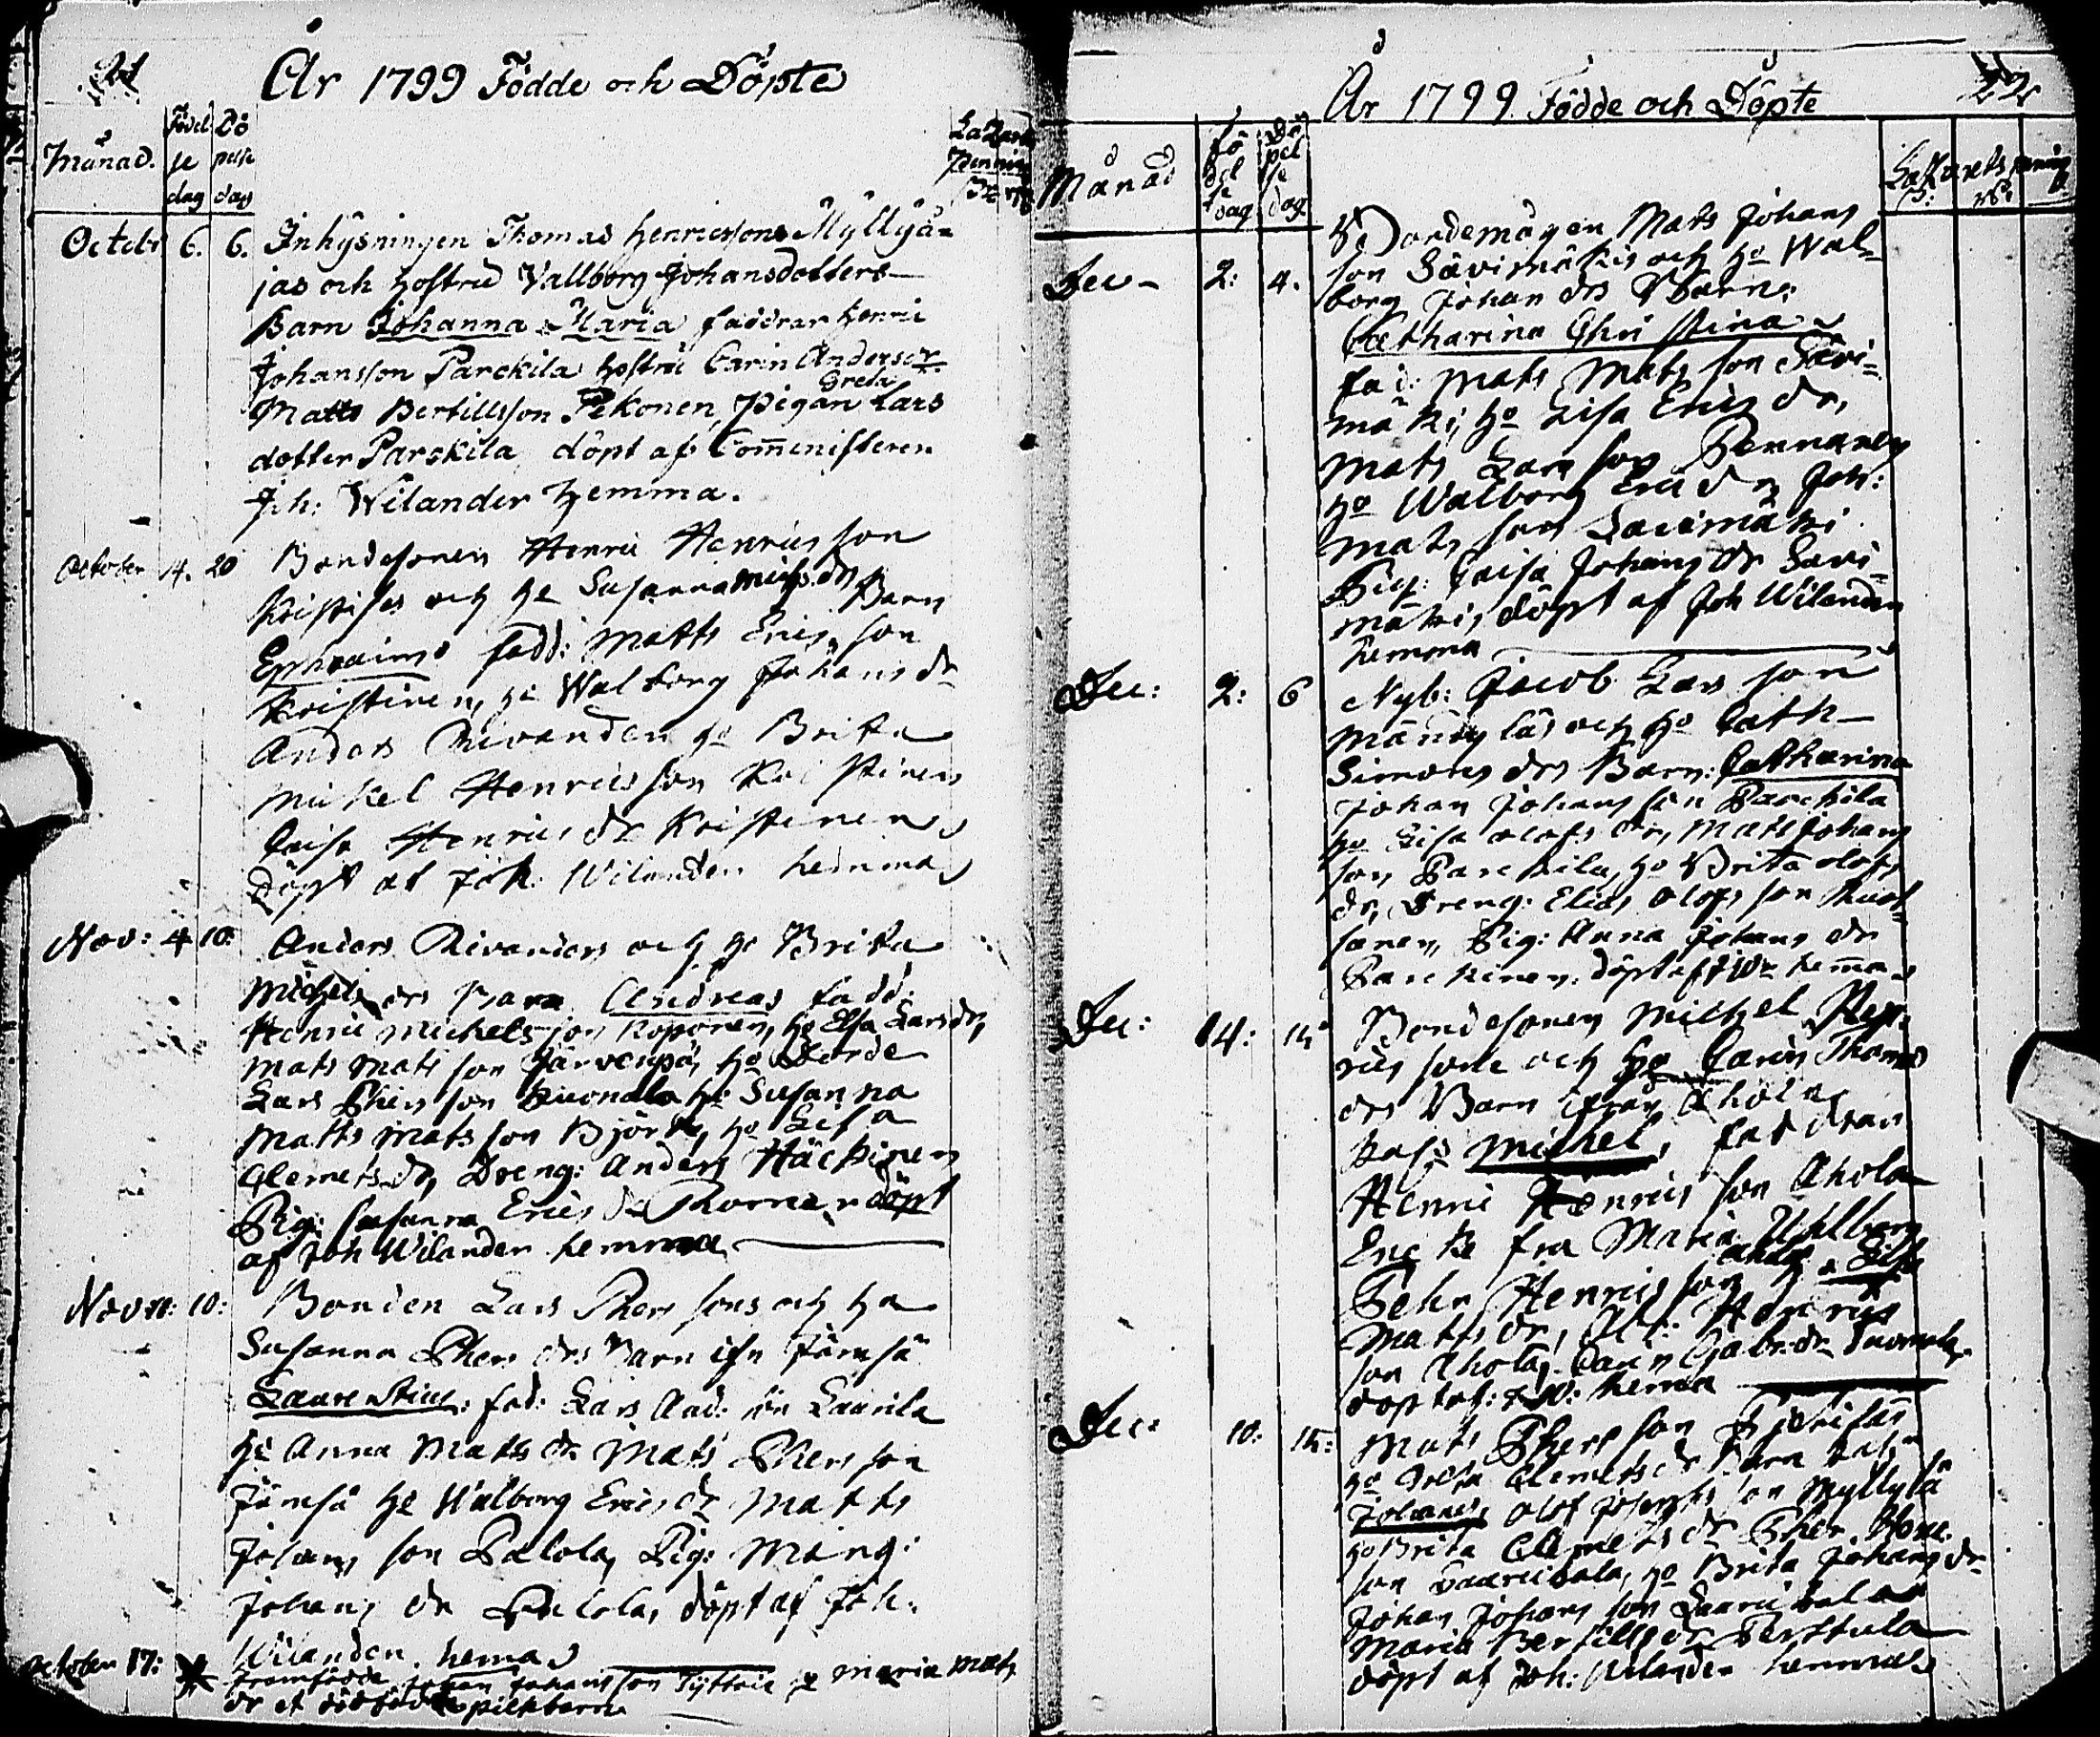 21
År 1799 Födde och Döpte
Månad. Födel se dag Dö pelse dag
Octobr 6. 6. Inhysningen Thomas Henricssons Myllyä=
jas och hostru Vallborg Johansdotters
Barn Johanna Maria faddrar Henric
Johansson Parckila hostru Carin Andersdr
Greta
Matts Bertillsson Pekonen, Pigan Lars
dotter Parckila döpt af Comministeren
Joh: Wilander hemma.
October 14. 20 Bondesonen Henric Henricsson
och he Susanna Mich: dr Barn
Ephraim fadd: Matts Erics son
Kristinen, he Walborg Johans dr
Anders Rivanden he Brita
Mickel Henricsson Kristinen
Caisa Henrics dr Kristinen
döpt af Joh. Wilander hemma
Nov: 4 10: Anders Rivanders och he Brita
Michels drs Barn Andreas fadd:
Henric Michelsson Koponen, he Elsa Lars dr,
Mats Mats son Järvenpä, ho Lorde
Lars Phers son Kuonala ho Susanna
Matts Mats son Björn, ho Lisa
Clemets dr, Dreng: Anders Häckinen
Pig: Susanna Erics dr döpt
af Joh Wilander hemma
Nov 10: 10: Bonden Lars Phers sons och ha
Susanna Phers drs Barn ifr Jämsä
Laurentius: fad: Lars And: son Laurila
he Anna Matts dr Mats Phersson
Jämsä he Walborg Erics dr Matts
Johans son Palola, Pig: Marg:
Johans dr Palola, döpt af Joh.
Wilander. hema
October 17: Framfödde Johan Johansson he Maria Mats
dr et dödfödt pilkbarn
22
År 1799 Födde och Döpte
Månad Fö del se dag Dö pel se dag
Lazarets pening
Dec - 2: 4. Bondemågen Mats Johans
son Savimäkis och ho Wal=
borg Johan drs Barn:
Catharina Christina
fad: Mats Mats son Savi=
mäki, ho Lisa Erics dr,
Mats Lars son Pennanen
ho Walborg Erics dr Joh:
Mats son Savimäki
Pig: Caisa Johans dr Savi=
mäki, döpt af Joh Wilander
hemma
Dec: 2: 6 Nyb: Jacob Lars son
och ho Cath
Simons drs Barn: Catharina
Johan Johans son Parckila
ho Lisa Olofs dr, Mats Johans
son Parckila, ho Brita Olofs
dr, Dreng: Elias Olofs son
Pig: Anna Johans dr
Parckinen. döpt af JW hemma
Dec: 14: 15 Bondesonen Michel Hen
rics sons och ho Carin Thomas
drs Barn ifrån Ahola
Michel, faddrar
Henric Henrics son Ahola
fru Maria Uhlborg
Pehr Henrics son ho Lisa
Matts dr, Henrics
son Ahola, Carin Gabr: dr
döpt af: J W: hema
Dec: 10: 15: Mats Phers son
ho Greta Clemets dr Barn
Johannes Olof Josephs son Myllylä
ho Brita Clemets dr Pher
son ho Brita Johans dr
Johan Johans son
Maria Bertills dr Perttula
döpt af Joh: Wilander hemma